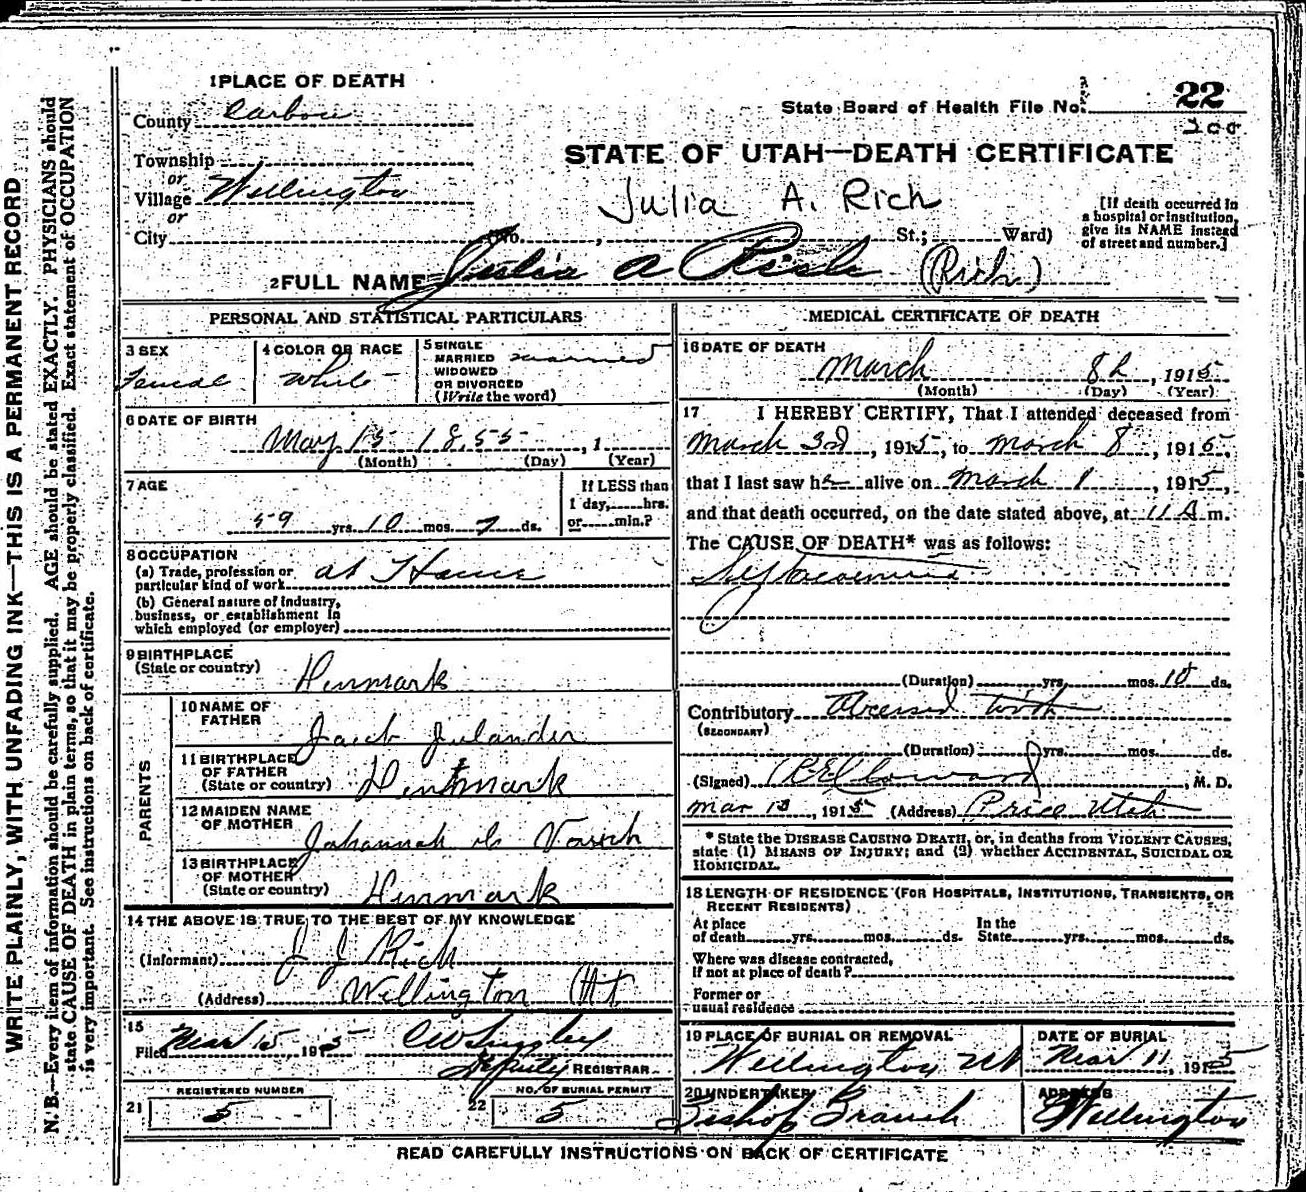 WRITE PLAINLY, WITH UNFADING INK—THIS IS A PERMANENT RECORD
N. B.—Every item of information should be carefully supplied. AGE should be stated EXACTLY. PHYSICIANS should
state CAUSE OF DEATH in plain terms, so that it may be properly classified. Exact statement of OCCUPATION
is very important. See instructions on back of certificate.
1 PLACE OF DEATH
County Carbon
State Board of Health File No. 22
200
Township
or
Village Wellington
or
City (No. , St.; Ward)
STATE OF UTAH—DEATH CERTIFICATE
Julia A. Rich
[If death occurred in
a hospital or institution,
give its NAME instead
of street and number.]
2 FULL NAME Julia A Rich (Rich)
PERSONAL AND STATISTICAL PARTICULARS
3 SEX
Female
4 COLOR OR RACE
White
5 SINGLE
MARRIED
WIDOWED
OR DIVORCED
(Write the word)
married
6 DATE OF BIRTH
May 15 1855, 1
(Month) (Day) (Year)
7 AGE
59 yrs. 10 mos. 7 ds.
If LESS than
1 day, hrs.
or min.?
8 OCCUPATION
(a) Trade, profession or
particular kind of work at Home
(b) General nature of industry,
business, or establishment in
which employed (or employer)
9 BIRTHPLACE
(State or country) Dinmark
PARENTS
10 NAME OF
FATHER
Jacob Julander
11 BIRTHPLACE
OF FATHER
(State or country) Dinmark
12 MAIDEN NAME
OF MOTHER
Johannah
13 BIRTHPLACE
OF MOTHER
(State or country) Dinmark
14 THE ABOVE IS TRUE TO THE BEST OF MY KNOWLEDGE
(Informant) J J Rich
(Address) Wellington Ut
15
Filed Mar 15, 1915
Deputy REGISTRAR
REGISTERED NUMBER
21 5
NO. OF BURIAL PERMIT
22 5
MEDICAL CERTIFICATE OF DEATH
16 DATE OF DEATH
March 8th, 1915
(Month) (Day) (Year)
17 I HEREBY CERTIFY, That I attended deceased from
March 3rd, 1915, to March 8, 1915,
that I last saw her alive on March 8, 1915,
and that death occurred, on the date stated above, at 11 A m.
The CAUSE OF DEATH* was as follows:
Septicaemia
(Duration) yrs. mos. 10 ds.
Contributory Abcessed tooth
(SECONDARY)
(Duration) yrs. mos. ds.
(Signed), M. D.
Mar 13, 1915 (Address) Price Utah
* State the DISEASE CAUSING DEATH, or, in deaths from VIOLENT CAUSES,
state (1) MEANS OF INJURY; and (2) whether ACCIDENTAL, SUICIDAL OR
HOMICIDAL.
18 LENGTH OF RESIDENCE (FOR HOSPITALS, INSTITUTIONS, TRANSIENTS, OR
RECENT RESIDENTS)
At place
of death yrs. mos. ds.
In the
State yrs. mos. ds.
Where was disease contracted,
if not at place of death?
Former or
usual residence
19 PLACE OF BURIAL OR REMOVAL
Wellington Ut
DATE OF BURIAL
Mar 11, 1915
20 UNDERTAKER
Bishop Branch
ADDRESS
Wellington
READ CAREFULLY INSTRUCTIONS ON BACK OF CERTIFICATE